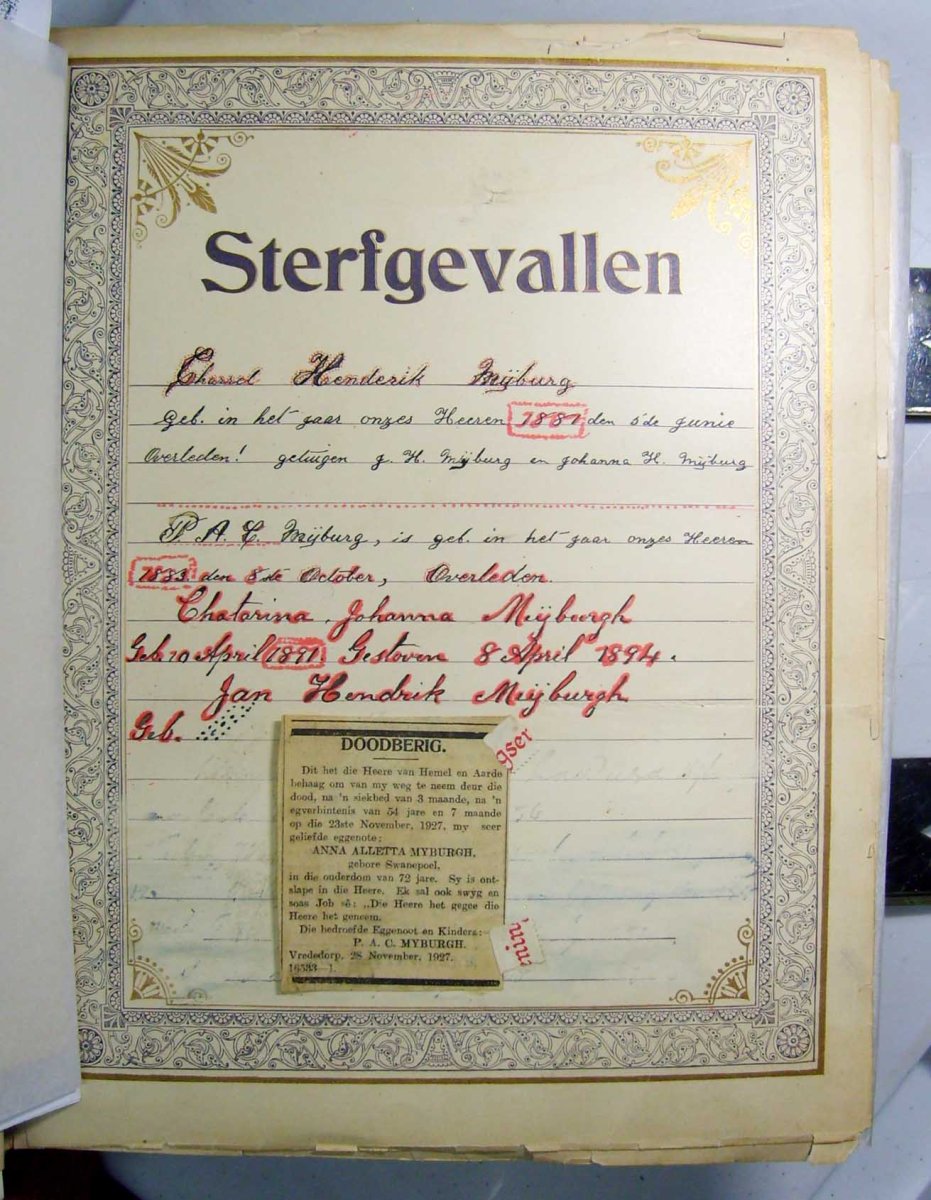 Sterfgevallen
Charrel Henderik Mÿburg
Geb. in het jaar onzes Heeren 1881 den 5'de junie
Overleden! getuigen J. H. Mÿburg en Johanna H. Mÿburg
P. A. C. Mÿburg, is geb. in het jaar onzes Heeren
1883 den 8'de October, Overleden.
Chatarina Johanna Mÿburgh
Geb. 10 April 1891 Gestoven 8 April 1894.
Jan Hendrik Mÿburgh
Geb.
DOODBERIG.
Dit het die Heere van Hemel en Aarde
behaag om van my weg te neem deur die
dood, na 'n siekbed van 3 maande, na 'n
egverbintenis van 54 jare en 7 maande
op die 23ste November, 1927, my seer
geliefde eggenote:
ANNA ALLETTA MYBURGH,
gebore Swanepoel,
in die ouderdom van 72 jare. Sy is ont-
slape in die Heere. Ek sal ook swyg en
soas Job sê: „Die Heere het gegee die
Heere het geneem.
Die bedroefde Eggenoot en Kinders:—
P. A. C. MYBURGH.
Vrededorp, 28 November, 1927.
16533—1.
gser